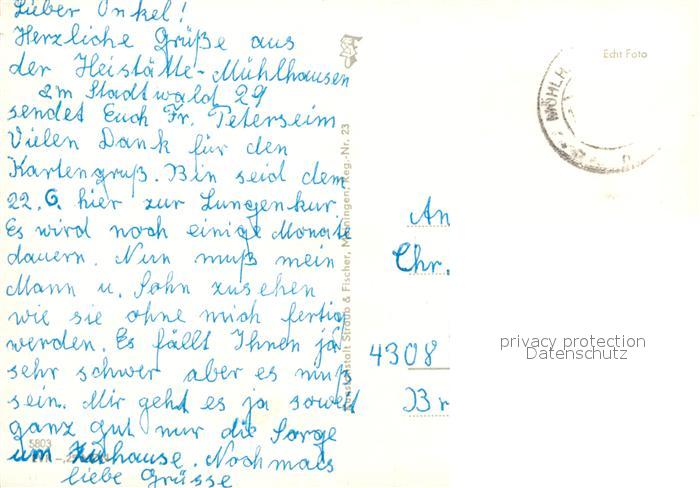 Lieber Onkel!
Herzliche Grüße aus
der Heistätte-Mühlhausen
am Stadtwald 29
sendet Euch Fr. Peterseim
Vielen Dank für den
Kartengruß. Bin seid dem
22.6. hier zur Lungenkur.
Es wird noch einige Monate
dauern. Nun muß mein
Mann u. Sohn zusehen
wie sie ohne mich fertig
werden. Es fällt Ihnen ja
sehr schwer aber es muß
sein. Mir geht es ja soweit
ganz gut nur die Sorge
um Zuhause. Nochmals
liebe Grüsse
Straub & Fischer, Meiningen, Reg.-Nr. 23
5803
Echt Foto
MÜHLH
An
Chr.
4308
Br
privacy protection
Datenschutz